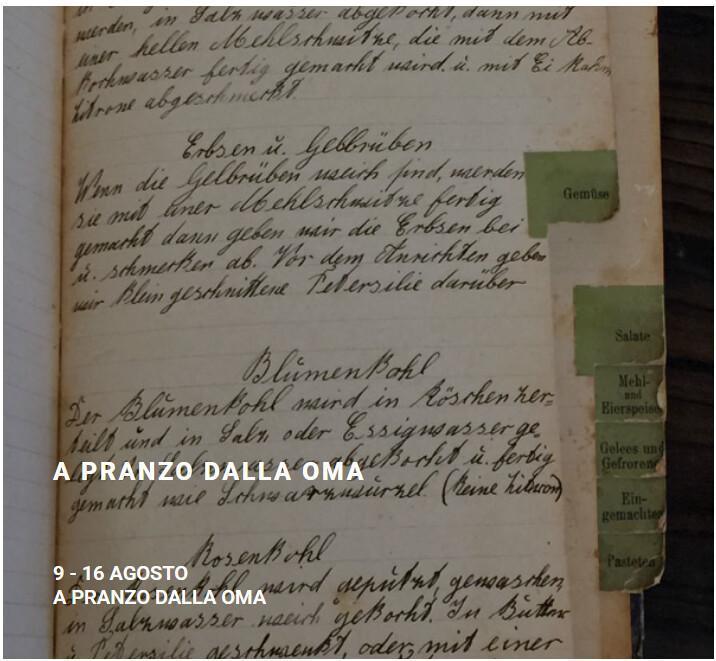 werden, in Salzwasser abgekocht, dann mit
einer hellen Mehlschwitze, die mit dem Ab-
kochwasser fertig gemacht wird u. mit Ei Rahm
Zitrone abgeschmeckt.
Erbsen u. Gelbrüben
Wenn die Gelbrüben weich sind, werden
sie mit einer Mehlschwitze fertig
gemacht dann geben wir die Erbsen bei
u. schmecken ab. Vor dem Anrichten geben
wir klein geschnittene Petersilie darüber
Blumenkohl
Der Blumenkohl wird in Röschen zer-
teilt und in Salz oder Essigwasser ge-
abgekocht u. fertig
gemacht wie Schwarzwurzel. (keine Zitrone)
Rosenkohl
wird geputzt, gewaschen,
in Salzwasser weich gekocht. In Butter
u. Petersilie geschwenkt, oder mit einer
Gemüse
Salate
Mehl-
und
Eierspeise
Gelees und
Gefrorene
Ein-
gemachtes
Pasteten
A PRANZO DALLA OMA
9 - 16 AGOSTO
A PRANZO DALLA OMA